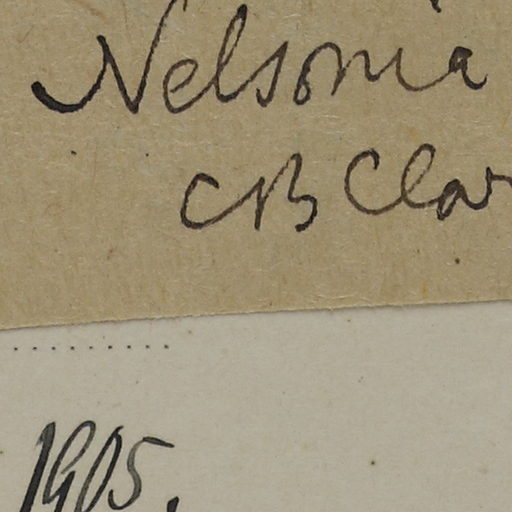 Nelsonia
CB Clar
1905.